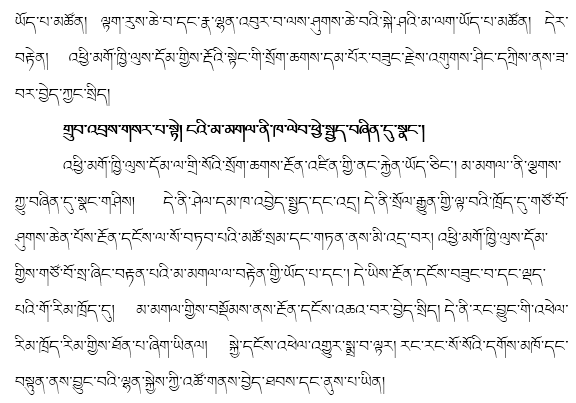 ཡོད་པ་མཚོན། ལྷག་རུས་ཆེ་བ་དང་རྣ་ལྷན་འབུར་བ་ལས་ཤུགས་ཆེ་བའི་སྐེ་ཤའི་མ་ལག་ཡོད་པ་མཚོན། དེར་
བརྟེན། འཕྱི་མགོ་ཁྱི་ལུས་དོམ་གྱིས་རྡོའི་སྟེང་གི་སྲོག་ཆགས་དམ་པོར་བཟུང་རྗེས་འགུགས་ཤིང་དཀྲིས་ནས་ཟ་
བར་བྱེད་ཀྱང་སྲིད།
གྲུབ་འབྲས་གསར་པ་སྟེ། ངའི་མ་མགལ་ནི་ཁ་ལེབ་ཕྱེ་སྤྱད་བཞིན་དུ་སྣང་།
འཕྱི་མགོ་ཁྱི་ལུས་དོམ་ལ་གྲི་སོའི་སྲོག་ཆགས་རྔོན་འཛིན་གྱི་ནང་རྐྱེན་ཡོད་ཅིང་། མ་མགལ་་ནི་ལྕགས་
ཀྱུ་བཞིན་དུ་སྣང་གཤིས། དེ་ནི་ཤེལ་དམ་ཁ་འབྱེད་སྤྱད་དང་འདྲ། དེ་ནི་སྲོལ་རྒྱུན་གྱི་ལྟ་བའི་ཁྲོད་དུ་གཙོ་བོ་
ཤུགས་ཆེན་པོས་རྔོན་དངོས་ལ་སོ་བཏབ་པའི་མཚོ་སྲམ་དང་གཏན་ནས་མི་འདྲ་བར། འཕྱི་མགོ་ཁྱི་ལུས་དོམ་
གྱིས་གཙོ་བོ་སྲ་ཞིང་བརྟན་པའི་མ་མགལ་ལ་བརྟེན་གྱི་ཡོད་པ་དང་། དེ་ཡིས་རྔོན་དངོས་བཟུང་བ་དང་ལྡད་
པའི་གོ་རིམ་ཁྲོད་དུ། མ་མགལ་གྱིས་བསྡོམས་ནས་རྔོན་དངོས་འཆའ་བར་བྱེད་སྲིད། དེ་ནི་རང་བྱུང་གི་འཕེལ་
རིམ་ཁྲོད་རིམ་གྱིས་ཐོན་པ་ཞིག་ཡིནལ། སྐྱེ་དངོས་འཕེལ་འགྱུར་སྨྲ་བ་ལྟར། རང་རང་སོ་སོའི་དགོས་མཁོ་དང་
བསྟུན་ནས་བྱུང་བའི་ལྷན་སྐྱེས་ཀྱི་འཚོ་གནས་བྱེད་ཐབས་དང་ནུས་པ་ཡིན།